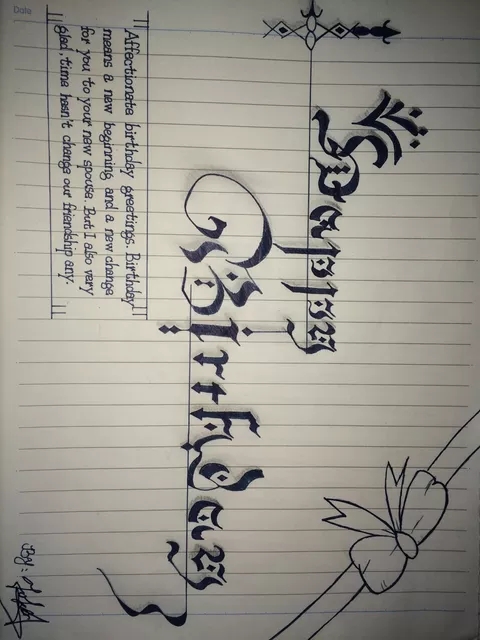 Date
Happy
Birthday
Affectionate birthday greetings. Birthday
means a new beginning and a new change
for you to your new spouse. But I also very
glad, time hasn't change our friendship any.
By: